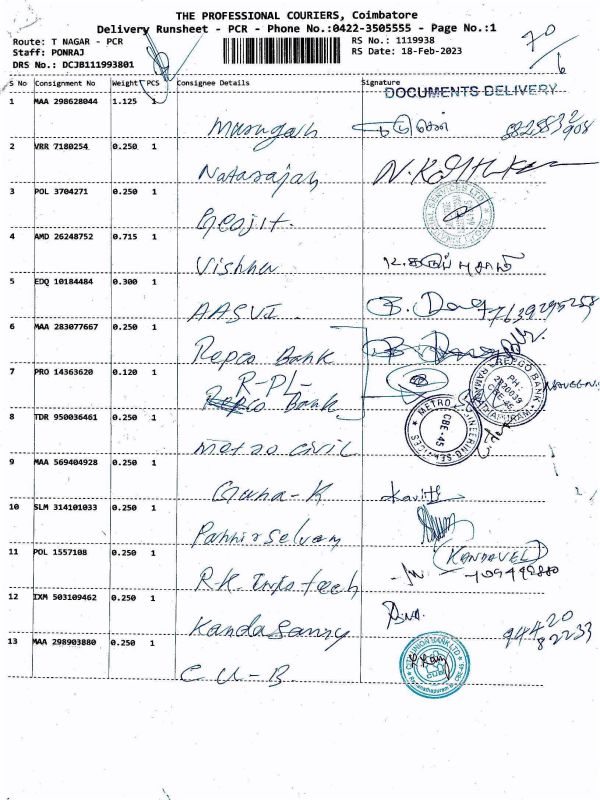 THE PROFESSIONAL COURIERS, Coimbatore
Delivery Runsheet - PCR - Phone No.:0422-3505555 - Page No.:1
Route: T NAGAR - PCR
RS No.: 1119938
Staff: PONRAJ
RS Date: 18-Feb-2023
DRS No.: DCJB111993801
70
6
S No Consignment No Weight PCS Consignee Details Signature
DOCUMENTS DELIVERY
1 MAA 298628044 1.125 1
Murugan
2 VRR 7180254 0.250 1
Natarajan
3 POL 3704271 0.250 1
Geojit.
4 AMD 26248752 0.715 1
Vishnu
5 EDQ 10184484 0.300 1
AASVI
6 MAA 283077667 0.250 1
Repco Bank
7 PRO 14363620 0.120 1
R-PL-
Repco Bank
REPCO BANK
PH:
2320039
CBE-45
RAMANATHAPURAM
8 TDR 950036461 0.250 1
Metro Civil
METRO ENGINEERING SERVICES
CBE-45
9 MAA 569404928 0.250 1
Guna-K Kavitha
10 SLM 314101033 0.250 1
Pannirselvam
11 POL 1557108 0.250 1
KANDAVEL
R.K. Infotech
12 IXM 503109462 0.250 1
Kandasamy
94420
82233
13 MAA 298903880 0.250 1
CITY UNION BANK LTD
CUB
C U-B